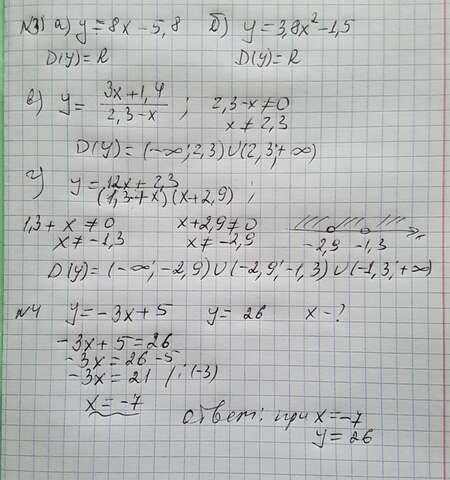 №3) а) y = 8x - 5,8 б) y = 3,8x² - 1,5
D(y) = R D(y) = R
в) y = (3x + 1,4)/(2,3 - x) ; 2,3 - x ≠ 0
x ≠ 2,3
D(y) = (-∞; 2,3) ∪ (2,3; +∞)
г) y = 12x + 2,3
(1,3 + x)(x + 2,9) ;
1,3 + x ≠ 0 x + 2,9 ≠ 0
x ≠ -1,3 x ≠ -2,9 -2,9 -1,3 x
D(y) = (-∞; -2,9) ∪ (-2,9; -1,3) ∪ (-1,3; +∞)
№4 y = -3x + 5 y = 26 x - ?
-3x + 5 = 26
-3x = 26 - 5
-3x = 21 /: (-3)
x = -7
ответ: при x = -7
y = 26